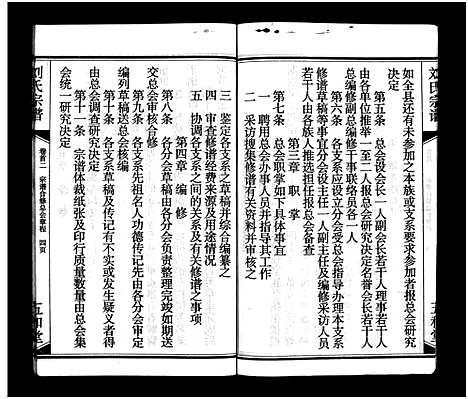 刘氏宗谱
如全县还有未参加之本族或支系要求参加者报总会研究决定
第五条 总会设会长一人副会长若干人理事若干人
由各单位推举一至二人报总会研究决定名誉会长若干人
总编修副总编修干事联络员各一人
第六条 各支系应设立分会受总会指导办理本支系
修谱草稿等事宜分会设主任一人副主任及编修采访人员
若干人由各族人推选胆任报总会备查
第三章 职掌
第七条 总会职掌如下具体事宜
一 聘用总会办事人员并指导其工作
二 采访搜集修谱有关资料并审核之
三 鉴定各支系之草稿并综合编纂之
四 审查修谱经费来源及用途情况
五 协调各支系之间的关系及有关修谱之事项
第四章 编修
第八条 各支系草稿各分会负责整理完竣如期送
交总会审核合修
第九条 各支系先祖名人功德传记先由各分会审定
编列草稿送总会核编
第十条 各支系草稿及传记有不实或发生疑义
由总会调查研究决定
第十一条 宗谱体裁纸张及印行质量数量由总会集
会统一研究决定
卷首二 宗谱合修总会章程 四页
刘氏宗谱